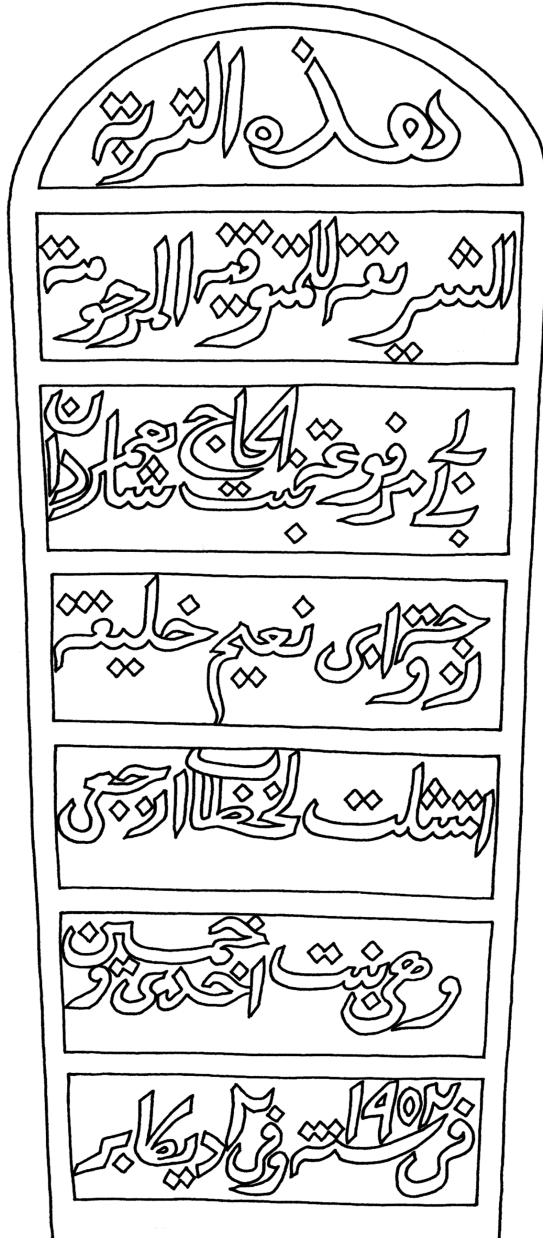 هذه التربة
الشريفة المتوفية المرحومة
بي بي مرفوعة بنت الحاج شاه مردان
زوجة ابن نعيم خليفة
امتثلت لخطاب ارجعي
وهي بنت احدى و خمسين
في سنة ١٩٥٢ وفي ٢ ديكابر